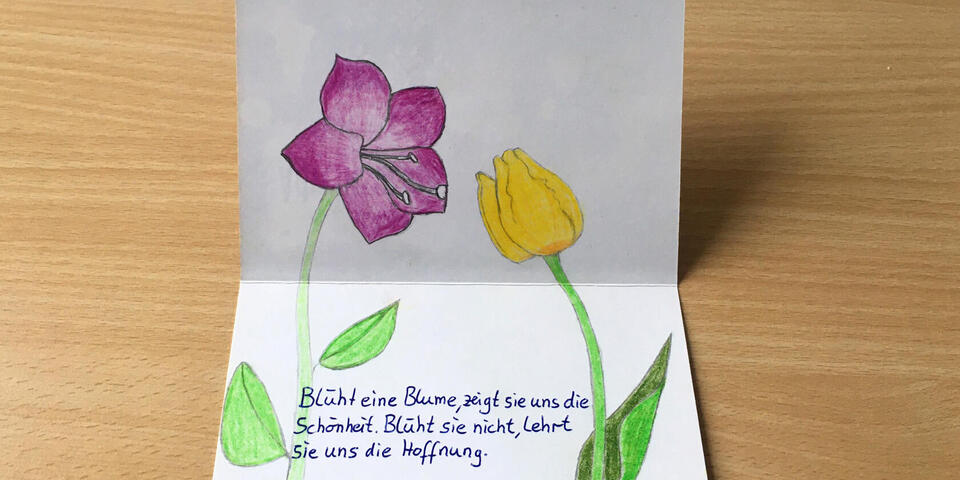 Blüht eine Blume, zeigt sie uns die
Schönheit. Blüht sie nicht, lehrt
sie uns die Hoffnung.